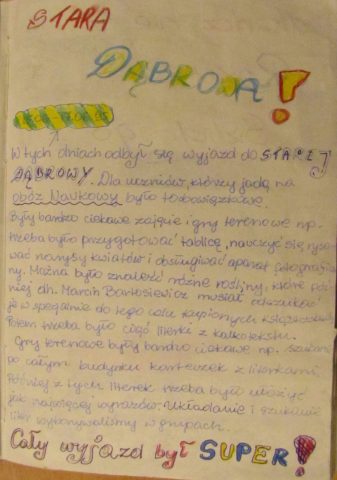 STARA
DĄBROWA!
W tych dniach odbył się wyjazd do STAREJ
DĄBROWY. Dla uczniów, którzy jadą na
obóz Naukowy było to obowiązkowe.
Były bardzo ciekawe zajęcia i gry terenowe np.
trzeba było przygotować tablicę, nauczyć się ryso-
wać i obsługiwać aparat
Można było znaleźć różne rośliny, które póź-
niej dh. Marcin Bartosiewicz musiał odszukać
je w specjalnie do tego celu kupionych
Potem trzeba było ciąć literki z
Gry terenowe były bardzo ciekawe np. szukanie
po całym budynku karteczek z literkami.
Później z tych literek trzeba było ułożyć
jak najwięcej wyrazów. Układanie i szukanie
liter wykonywaliśmy w grupach.
Cały wyjazd był SUPER!